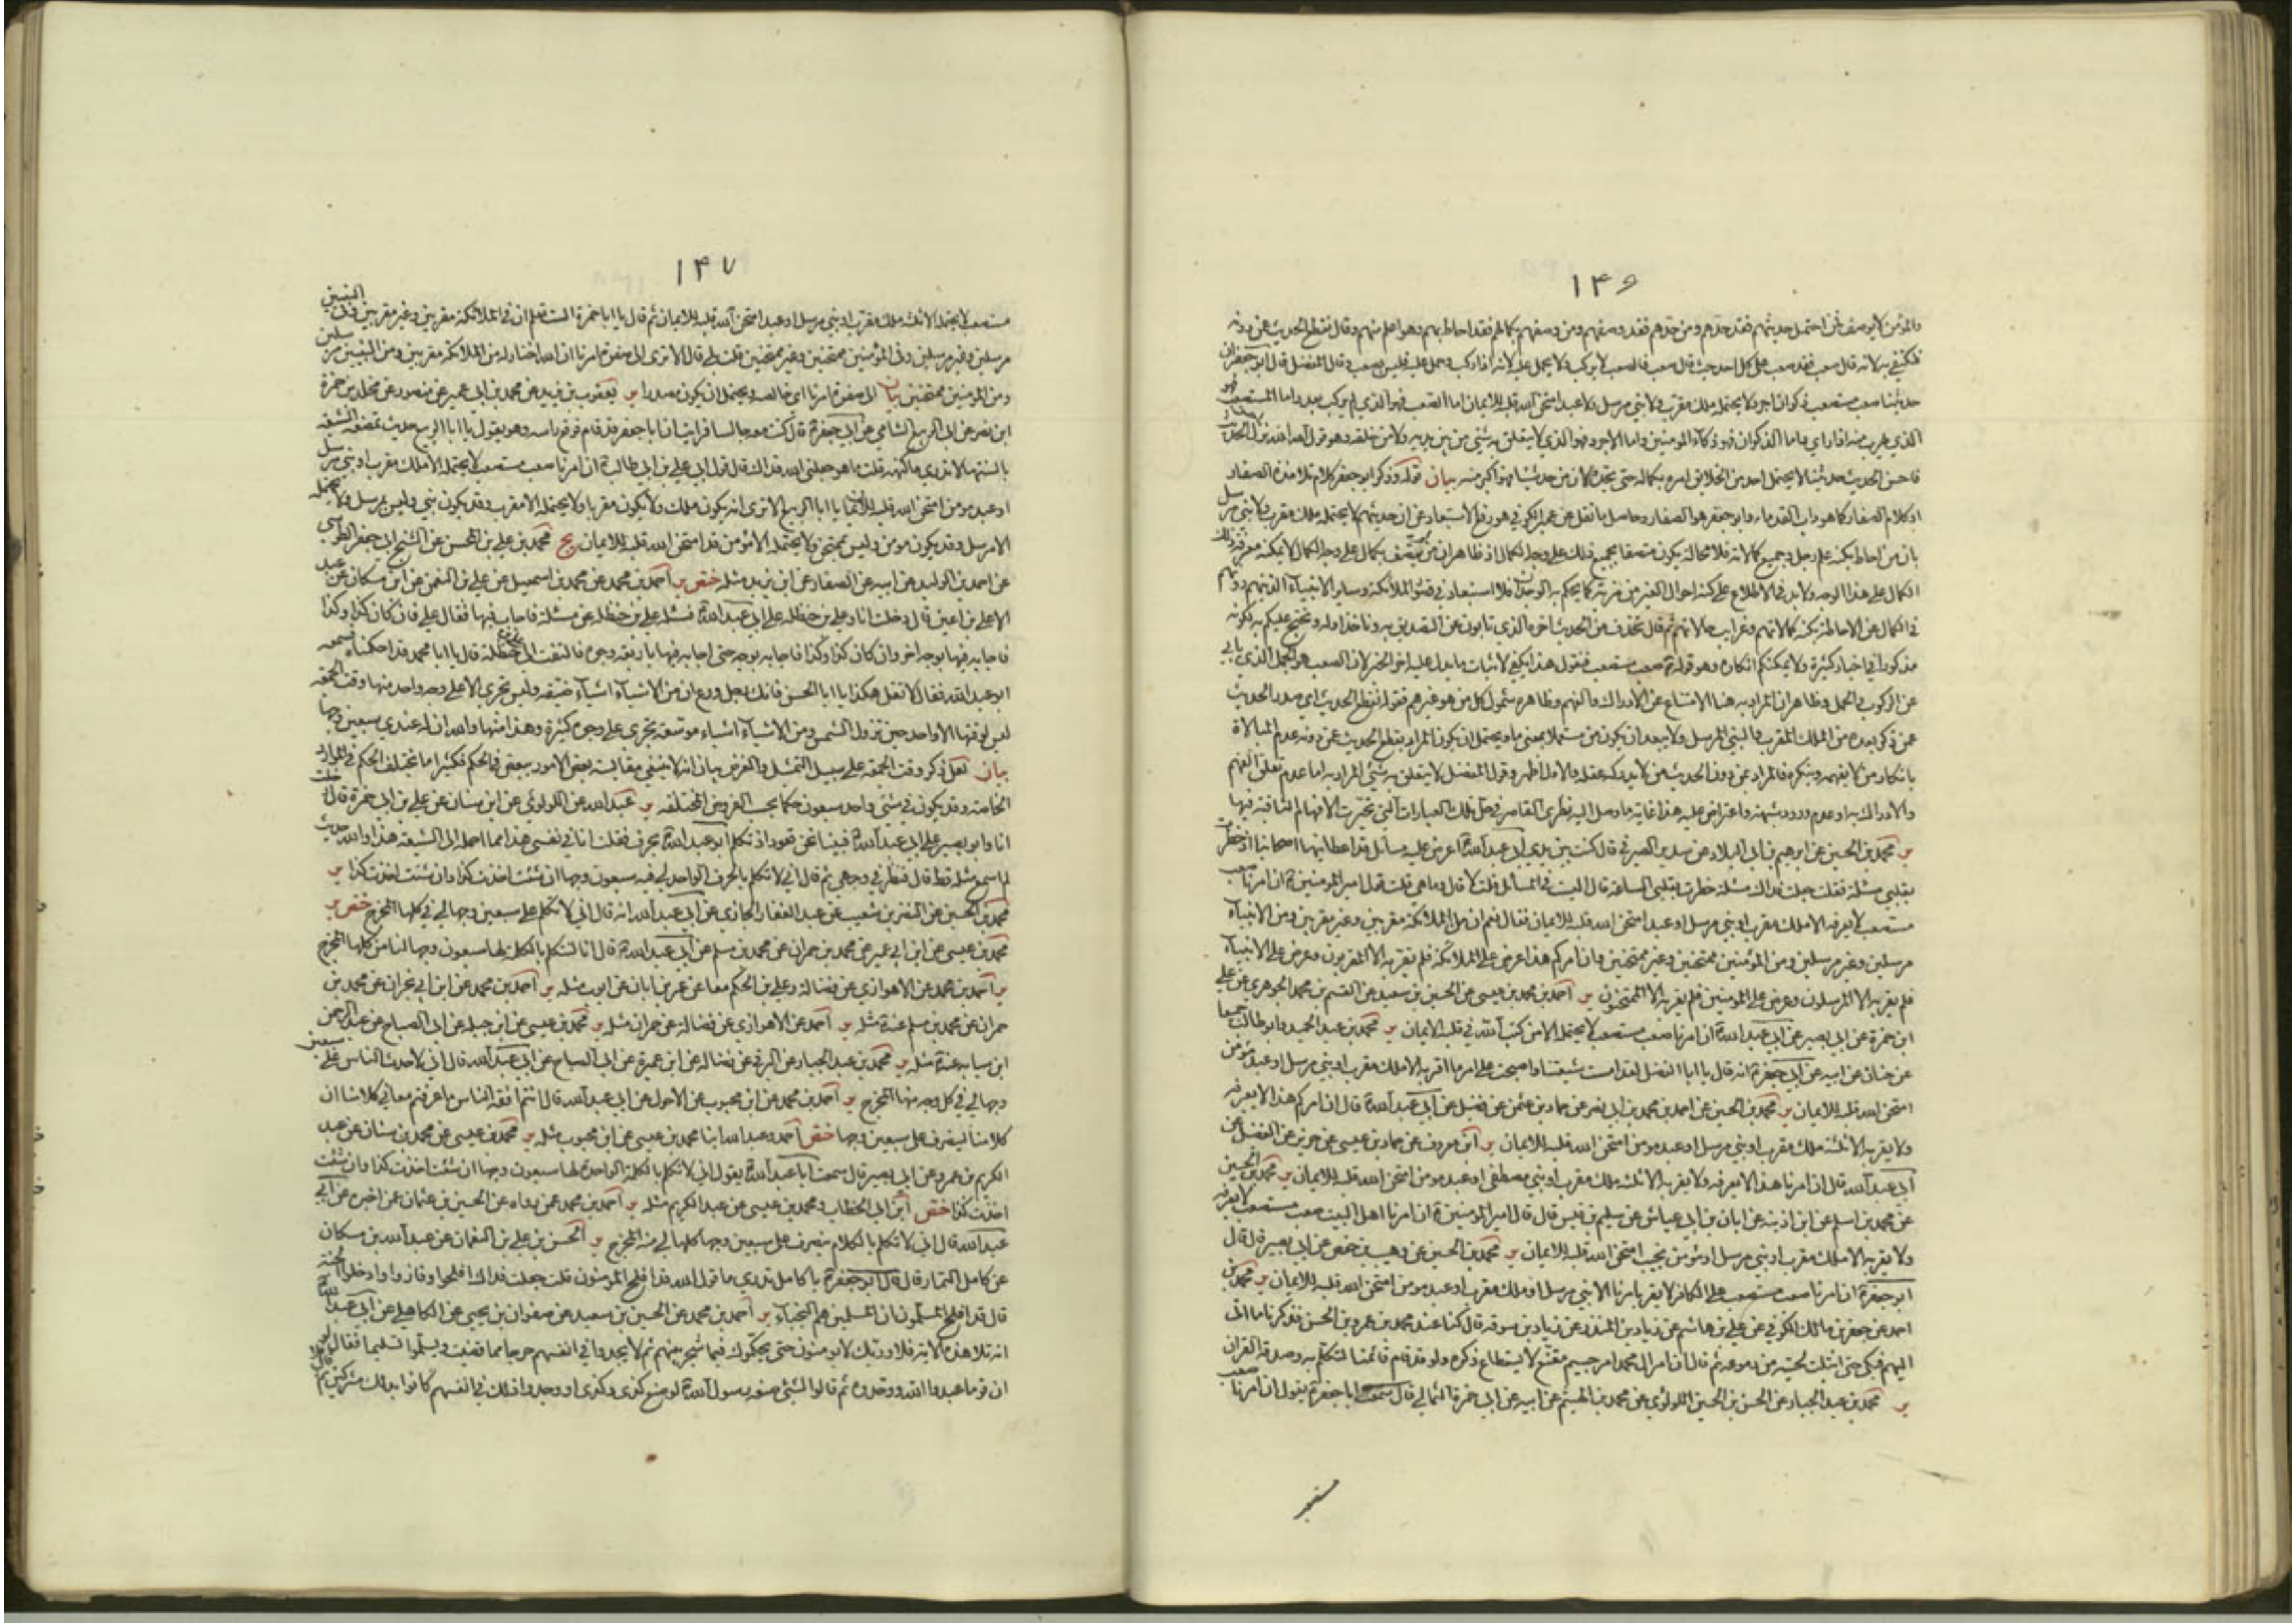 ١٤٦
والمؤمن لا يوصف فمن احتمل حديثهم فقد حدهم ومن حدهم فقد وصفهم ومن وصفهم بكمالهم فقد احاط بهم وهو اعلم منهم وقال نقطع الحديث عمن دونه
فنكتفي به لانه قال صعب فقد صعب على كل احد حيث قال صعب فالصعب لا يركب ولا يحمل عليه لانه اذا ركب وحمل عليه فليس بصعب وقال المفضل قال ابو جعفر ان
حديثنا صعب مستصعب ذكوان اجرد لا يحتمله ملك مقرب ولا نبي مرسل ولا عبد امتحن الله قلبه للايمان اما الصعب فهو الذي لم يركب بعد واما المستصعب فهو
الذي يهرب منه اذا راى واما الذكوان فهو ذكاء المؤمنين واما الاجرد فهو الذي لا يتعلق به شئ من بين يديه ولا من خلفه وهو قول الله الله نزل احسن الحديث
فاحسن الحديث حديثنا لا يحتمل احد من الخلايق امره بكماله حتى يحده لان من حد شيئا فهو اكبر منه بيان قوله وذكر ابو جعفر كلام تلامذة الصفار
او كلام الصفار كما هو داب القدماء وابو جعفر هو الصفار وحاصل ما نقل عن عمير الكوفي هو رفع الاستبعاد عن ان حديثهم لا يحتمله ملك مقرب ولا نبي مرسل
بان من احاط بكنه علم رجل وجميع كمالاته فلا محالة يكون متصفا بجميع ذلك على وجه الكمال اذ ظاهر ان من لم يتصف بكمال على وجه الكمال لا يمكنه معرفة ذلك
الكمال على هذا الوجه ولا بد في الاطلاع على كنه احوال الغير من مزية كما يحكم به الوجدان فلا استبعاد في قصور الملائكة وساير الانبياء الذين هم دونهم
في الكمال عن الاحاطة بكنه كمالاتهم وغرايب حالاتهم ثم قال نحذف من الحديث اخره الذي تابون عن التصديق به وناخذ اوله ونحتج عليكم به لكونه
مذكورا في اخبار كثيرة ولا يمكنكم انكاره وهو قوله صعب مستصعب فنقول هذا يكفي لاثبات ما يدل عليه اخر الخبر لان الصعب هو الجمل الذي يابى
عن الركوب والحمل وظاهر ان المراد به هنا الامتناع عن الادراك والفهم وظاهره شمول كل من هو غيرهم فقوله نقطع الحديث اي صدر الحديث
عمن ذكر بعده من الملك المقرب والنبي المرسل ولا يبعد ان يكون من مستعملا بمعنى ما ويحتمل ان يكون المراد بقطع الحديث عمن دونه عدم المبالاة
بانكار من لا يفهمه وينكره فالمراد بمن دون الحديث من لا يدركه عقله والاول اظهر وقول المفضل لا يتعلق به شئ المراد به اما عدم تعلق الفهم
والادراك به او عدم ورود شبهة واعتراض عليه هذا غاية ما وصل اليه نظري القاصر في حل تلك العبارات التي تحيرت الافهام الثاقبة فيها
ير محمد بن الحسين عن ابرهيم بن ابي البلاد عن سدير الصيرفي قال كنت بين يدي ابي عبد الله اعرض عليه مسائل قد اعطانيها اصحابنا اذ خطرت
بقلبي مسئلة فقلت جعلت فداك مسئلة خطرت بقلبي الساعة قال اليست في المسائل قلت لا قال وما هي قلت قول امير المؤمنين ان امرنا صعب
مستصعب لا يعرفه الا ملك مقرب او نبي مرسل او عبد امتحن الله قلبه للايمان فقال نعم ان من الملائكة مقربين وغير مقربين ومن الانبياء
مرسلين وغير مرسلين ومن المؤمنين ممتحنين وغير ممتحنين وان امركم هذا عرض على الملائكة فلم يقر به الا المقربون وعرض على الانبياء
فلم يقر به الا المرسلون وعرض على المؤمنين فلم يقر به الا الممتحنون ير احمد بن محمد بن عيسى عن الحسين بن سعيد عن القسم بن محمد الجوهري عن علي
ابن حمزة عن ابي بصير عن ابي عبد الله ان امرنا صعب مستصعب لا يحتمله الا من كتب الله في قلبه الايمان ير محمد بن عبد الحميد وابو طالب جميعا
عن حنان عن ابيه عن ابي جعفر انه قال يا ابا الفضل لقد امست شيعتنا واصبحت على امر ما اقر به الا ملك مقرب او نبي مرسل او عبد مؤمن
امتحن الله قلبه للايمان ير محمد بن الحسين عن احمد بن محمد بن ابي نصر عن حماد بن عثمن عن فضيل عن ابي عبد الله قال ان امركم هذا لا يعرفه
ولا يقر به الا ثلثة ملك مقرب او نبي مرسل او عبد مومن امتحن الله قلبه للايمان ير ابن معروف عن حماد بن عيسى عن حريز عن الفضل عن
ابي عبد الله قال ان امرنا هذا لا يعرفه ولا يقر به الا ثلثة ملك مقرب او نبي مصطفى او عبد مومن امتحن الله قلبه للايمان ير محمد بن الحسين
عن محمد بن اسلم عن ابن اذينة عن ابان بن ابي عياش عن سليم بن قيس قال قال امير المؤمنين ان امرنا اهل البيت صعب مستصعب لا يعرفه
ولا يقر به الا ملك مقرب او نبي مرسل او مؤمن نجيب امتحن الله قلبه للايمان ير محمد بن الحسين عن وهيب بن حفص عن ابي بصير قال قال
ابو جعفر ان امرنا صعب مستصعب على الكافر لا يقر بامرنا الا نبي مرسل او ملك مقرب او عبد مومن امتحن الله قلبه للايمان ير محمد بن
احمد عن جعفر بن مالك الكوفي عن علي بن هاشم عن زياد بن المنذر عن زياد بن سوقه قال كنا عند محمد بن عمرو بن الحسن فذكرنا ما اتى
اليهم فبكى حتى ابتلت لحيته من دموعه ثم قال ان امر ال محمد امر جسيم مقنع لا يستطاع ذكره ولو قد قام قائمنا لتكلم به وصدقه القران
ير محمد بن عبد الجبار عن الحسن بن الحسين اللولوي عن محمد بن الهيثم عن ابيه عن ابي حمزة الثمالي قال سمعت ابا جعفر يقول ان امرنا صعب
مستصعب
١٤٧
مستصعب لا يحتمله الا ثلثه ملك مقرب او نبي مرسل او عبد امتحن الله قلبه للايمان ثم قال يا ابا حمزة الست تعلم ان في الملائكة مقربين وغير مقربين وفي النبيين
مرسلين وغير مرسلين وفي المؤمنين ممتحنين وغير ممتحنين قلت بلى قال الا ترى الى صفوة امرنا ان الله اختار له من الملائكة مقربين ومن النبيين مرسلين
ومن المؤمنين ممتحنين بيان الى صفوة امرنا اي خالصه ويحتمل ان يكون مصدرا ير يعقوب بن يزيد عن محمد بن ابي عمير عن منصور عن مخلد بن حمزة
ابن نصر عن ابي الربيع الشامي عن ابي جعفر قال كنت معه جالسا فرايت ان ابا جعفر قد قام فرفع راسه وهو يقول يا ابا الربيع حديث تمضغه الشيعة
بالسنتها لا تدري ما كنهه قلت ما هو جعلني الله فداك قال قول ابي علي بن ابي طالب ان امرنا صعب مستصعب لا يحتمله الا ملك مقرب او نبي مرسل
او عبد مومن امتحن الله قلبه للايمان يا ابا الربيع الا ترى انه يكون ملك ولا يكون مقربا ولا يحتمله الا مقرب وقد يكون نبي وليس بمرسل ولا يحتمله
الا مرسل وقد يكون مومن وليس بممتحن ولا يحتمله الا مؤمن قد امتحن الله قلبه للايمان يج محمد بن علي بن المحسن عن الشيخ ابي جعفر الطوسي
عن احمد بن الوليد عن ابيه عن الصفار عن ابن يزيد مثله ختص ير احمد بن محمد عن محمد بن اسمعيل عن علي بن النعمن عن ابن مسكان عن عبد
الاعلى بن اعين قال دخلت انا وعلي بن حنظله على ابي عبد الله فسئله علي بن حنظله عن مسئلة فاجاب فيها فقال علي فان كان كذا وكذا
فاجابه فيها بوجه اخر وان كان كذا وكذا فاجابه بوجه حتى اجابه فيها باربعة وجوه فالتفت الى علي بن حنظلة قال يا ابا محمد قد احكمناه فسمعه
ابو عبد الله فقال لا تقل هكذا يا ابا الحسن فانك رجل ورع ان من الاشياء اشياء ضيقه وليس تجري الا على وجه واحد منها وقت الجمعه
ليس لوقتها الا واحد حين تزول الشمس ومن الاشياء اشياء موسعه تجري على وجوه كثيرة وهذا منها والله ان له عندي سبعين وجها
بيان لعل ذكر وقت الجمعه على سبيل التمثيل والغرض بيان انه لا ينبغي مقايسة بعض الامور ببعض في الحكم فكثيرا ما يختلف الحكم في الموارد
الخاصة وقد يكون في شئ واحد سبعون حكما بحسب الفروض المختلفه ير عبد الله عن اللولوئي عن ابن سنان عن علي بن ابي حمزة قال دخلت
انا وابو بصير على ابي عبد الله فبينا نحن قعود اذ تكلم ابو عبد الله بحرف فقلت انا في نفسي هذا مما احمله الى الشيعه هذا والله حديث
لم اسمع مثله قط قال فنظر في وجهي ثم قال اني لا تكلم بالحرف الواحد لي فيه سبعون وجها ان شئت اخذت كذا وان شئت اخذت كذا ير
محمد بن الحسين عن النضر بن شعيب عن عبد الغفار الجازي عن ابي عبد الله انه قال اني لا تكلم على سبعين وجها لي في كلها المخرج ختص ير
محمد بن عيسى عن ابن ابي عمير عن محمد بن حمران عن محمد بن مسلم عن ابي عبد الله قال انا لنتكلم بالكلمة بها سبعون وجها لنا من كلها المخرج
ير احمد بن محمد عن الاهوازي عن فضالة وعلي بن الحكم معا عن عمر بن ابان عن ايوب مثله ير احمد بن محمد عن ابن ابي نجران عن محمد بن
حمران عن محمد بن مسلم عنه مثله ير احمد عن الاهوازي عن فضالة عن حمران مثله ير محمد بن عيسى عن ابن جبله عن ابي الصباح عن عبد الرحمن
ابن سيابه عنه مثله ير محمد بن عبد الجبار عن البرقي عن فضاله عن ابن عميرة عن ابي الصباح عن ابي عبد الله قال اني لاحدث الناس على سبعين
وجها لي في كل وجه منها المخرج ير احمد بن محمد عن ابن محبوب عن الاحول عن ابي عبد الله قال انتم افقه الناس ما عرفتم معاني كلامنا ان
كلامنا لينصرف على سبعين وجها ختص احمد وعبد الله ابنا محمد بن عيسى عن ابن محبوب مثله ير محمد بن عيسى عن محمد بن سنان عن عبد
الكريم بن عمرو عن ابي بصير قال سمعت ابا عبد الله يقول اني لا تكلم بالكلمة الواحدة لها سبعون وجها ان شئت اخذت كذا وان شئت
اخذت كذا ختص ابن ابي الخطاب ومحمد بن عيسى عن عبد الكريم مثله ير احمد بن محمد عمن رواه عن الحسين بن عثمان عمن اخبره عن ابي
عبد الله قال اني لا تكلم بالكلام ينصرف على سبعين وجها كلها لي منه المخرج ير الحسن بن علي بن النعمان عن عبد الله بن مسكان
عن كامل التمار قال قال ابو جعفر يا كامل تدري ما قول الله قد افلح المؤمنون قلت جعلت فداك افلحوا وفازوا وادخلوا الجنة
قال قد افلح المسلمون ان المسلمين هم النجباء ير احمد بن محمد عن الحسين بن سعيد عن صفوان بن يحيى عن الكاهلي عن ابي عبد الله
انه تلا هذه الاية فلا وربك لا يومنون حتى يحكموك فيما شجر بينهم ثم لا يجدوا في انفسهم حرجا مما قضيت ويسلموا تسليما فقال لو
ان قوما عبدوا الله ووحدوه ثم قالوا لشئ صنعه رسول الله لو صنع كذى وكذى او وجدوا ذلك في انفسهم كانوا بذلك مشركين ثم قال